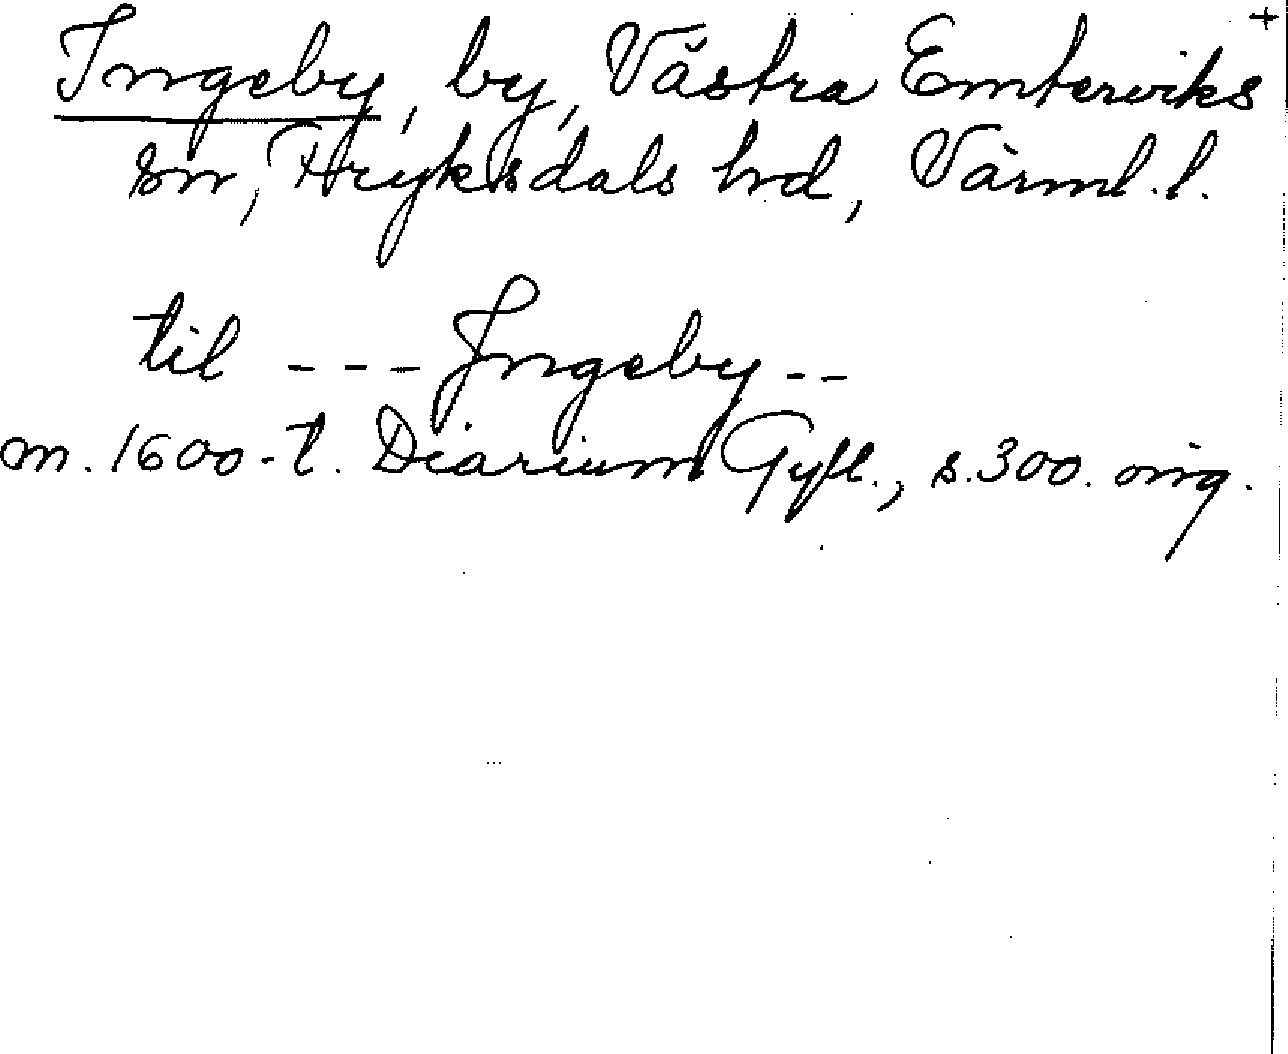 Ingeby, by, Västra Emterviks +
sn, Fryksdals hrd, Värml. l.
til - - - Ingeby - -
m. 1600-t. Diarium Gyll., s. 300. orig.